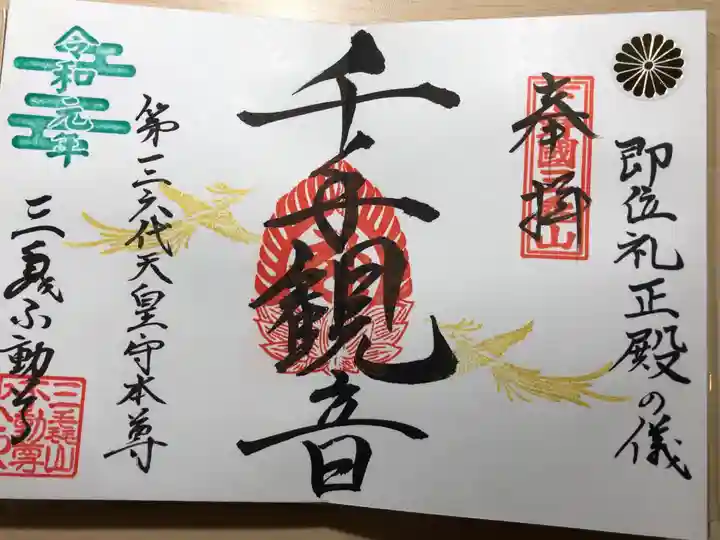 即位礼正殿の儀
奉拝
千手観音
第一二六代天皇守本尊
令和元年
三毳不動尊
三毳山
不動尊